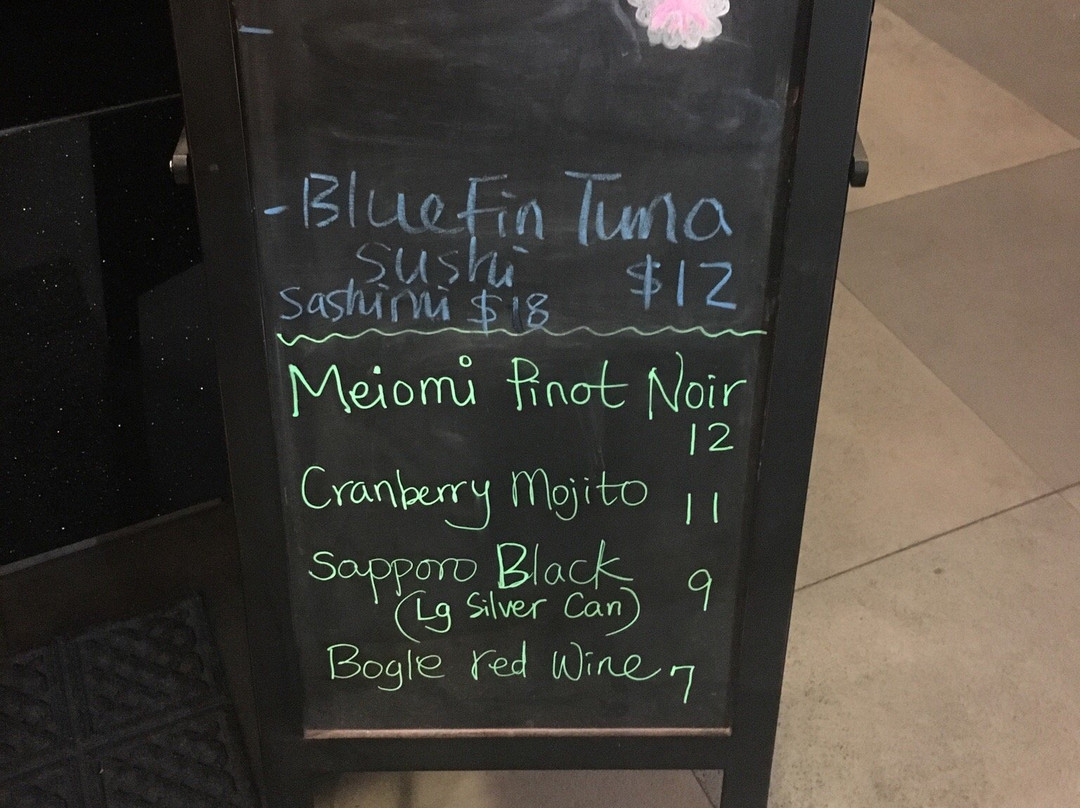 - Blue Fin Tuna
Sushi $12
Sashimi $18
Meiomi Pinot Noir
12
Cranberry Mojito 11
Sapporo Black 9
(Lg Silver Can)
Bogle red Wine 7